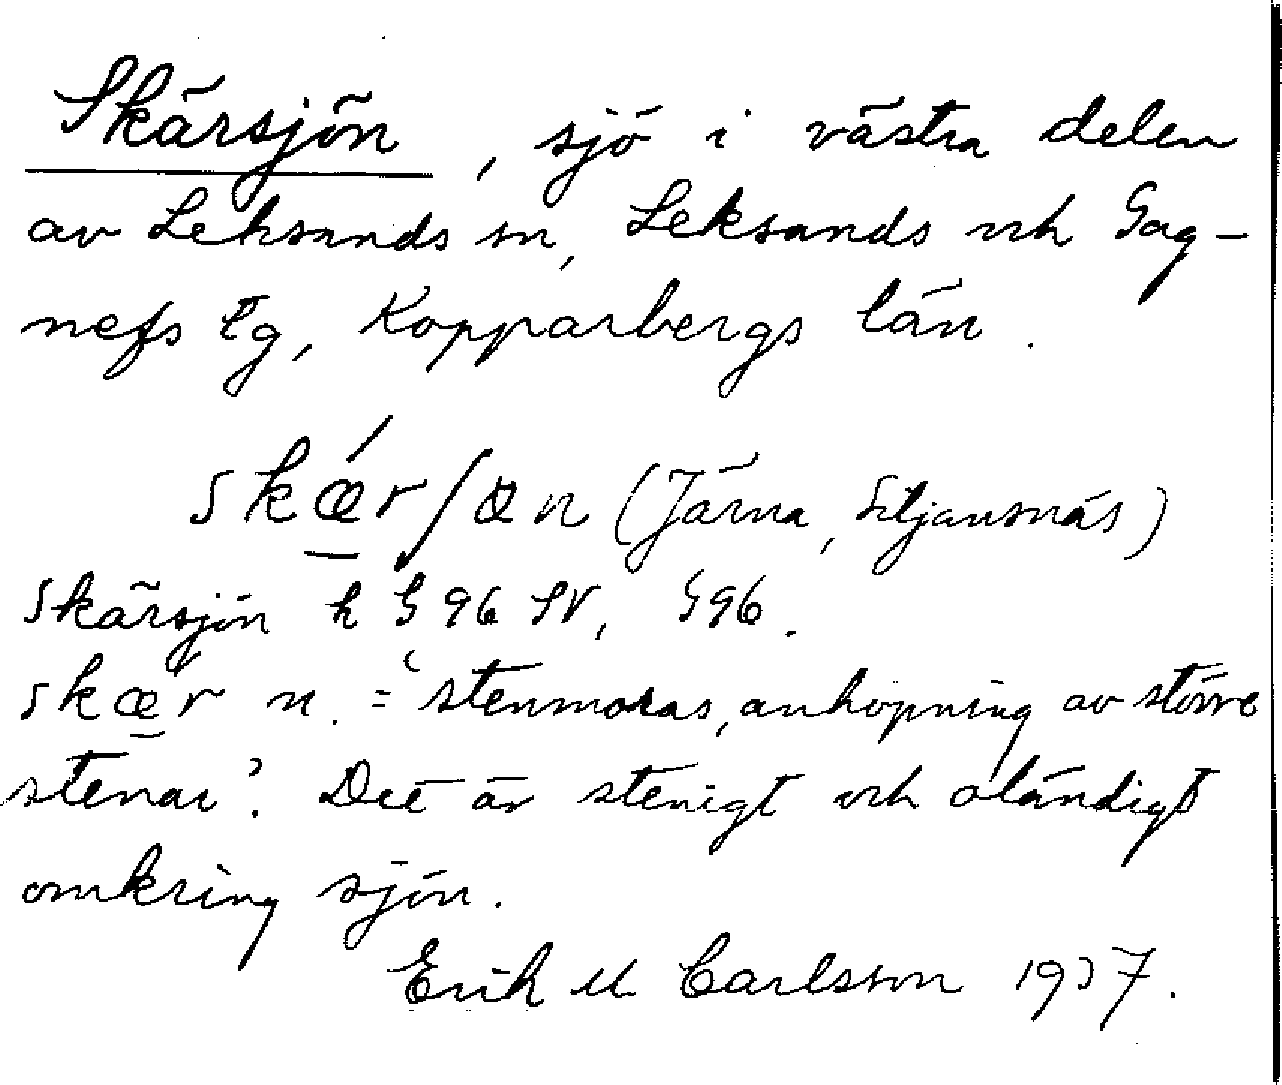 Skärsjön, sjö i västra delen
av Leksands sn, Leksands och Gag-
nefs tg, Kopparbergs län.
skǽr/ʃön (Järna, Siljansnäs)
Skärsjön k G 96 SV, G 96.
skær n. = ‘stenmoras, anhopning av större
stenar’. Det är stenigt och oländigt
omkring sjön.
Erik M Carlsson 1937.